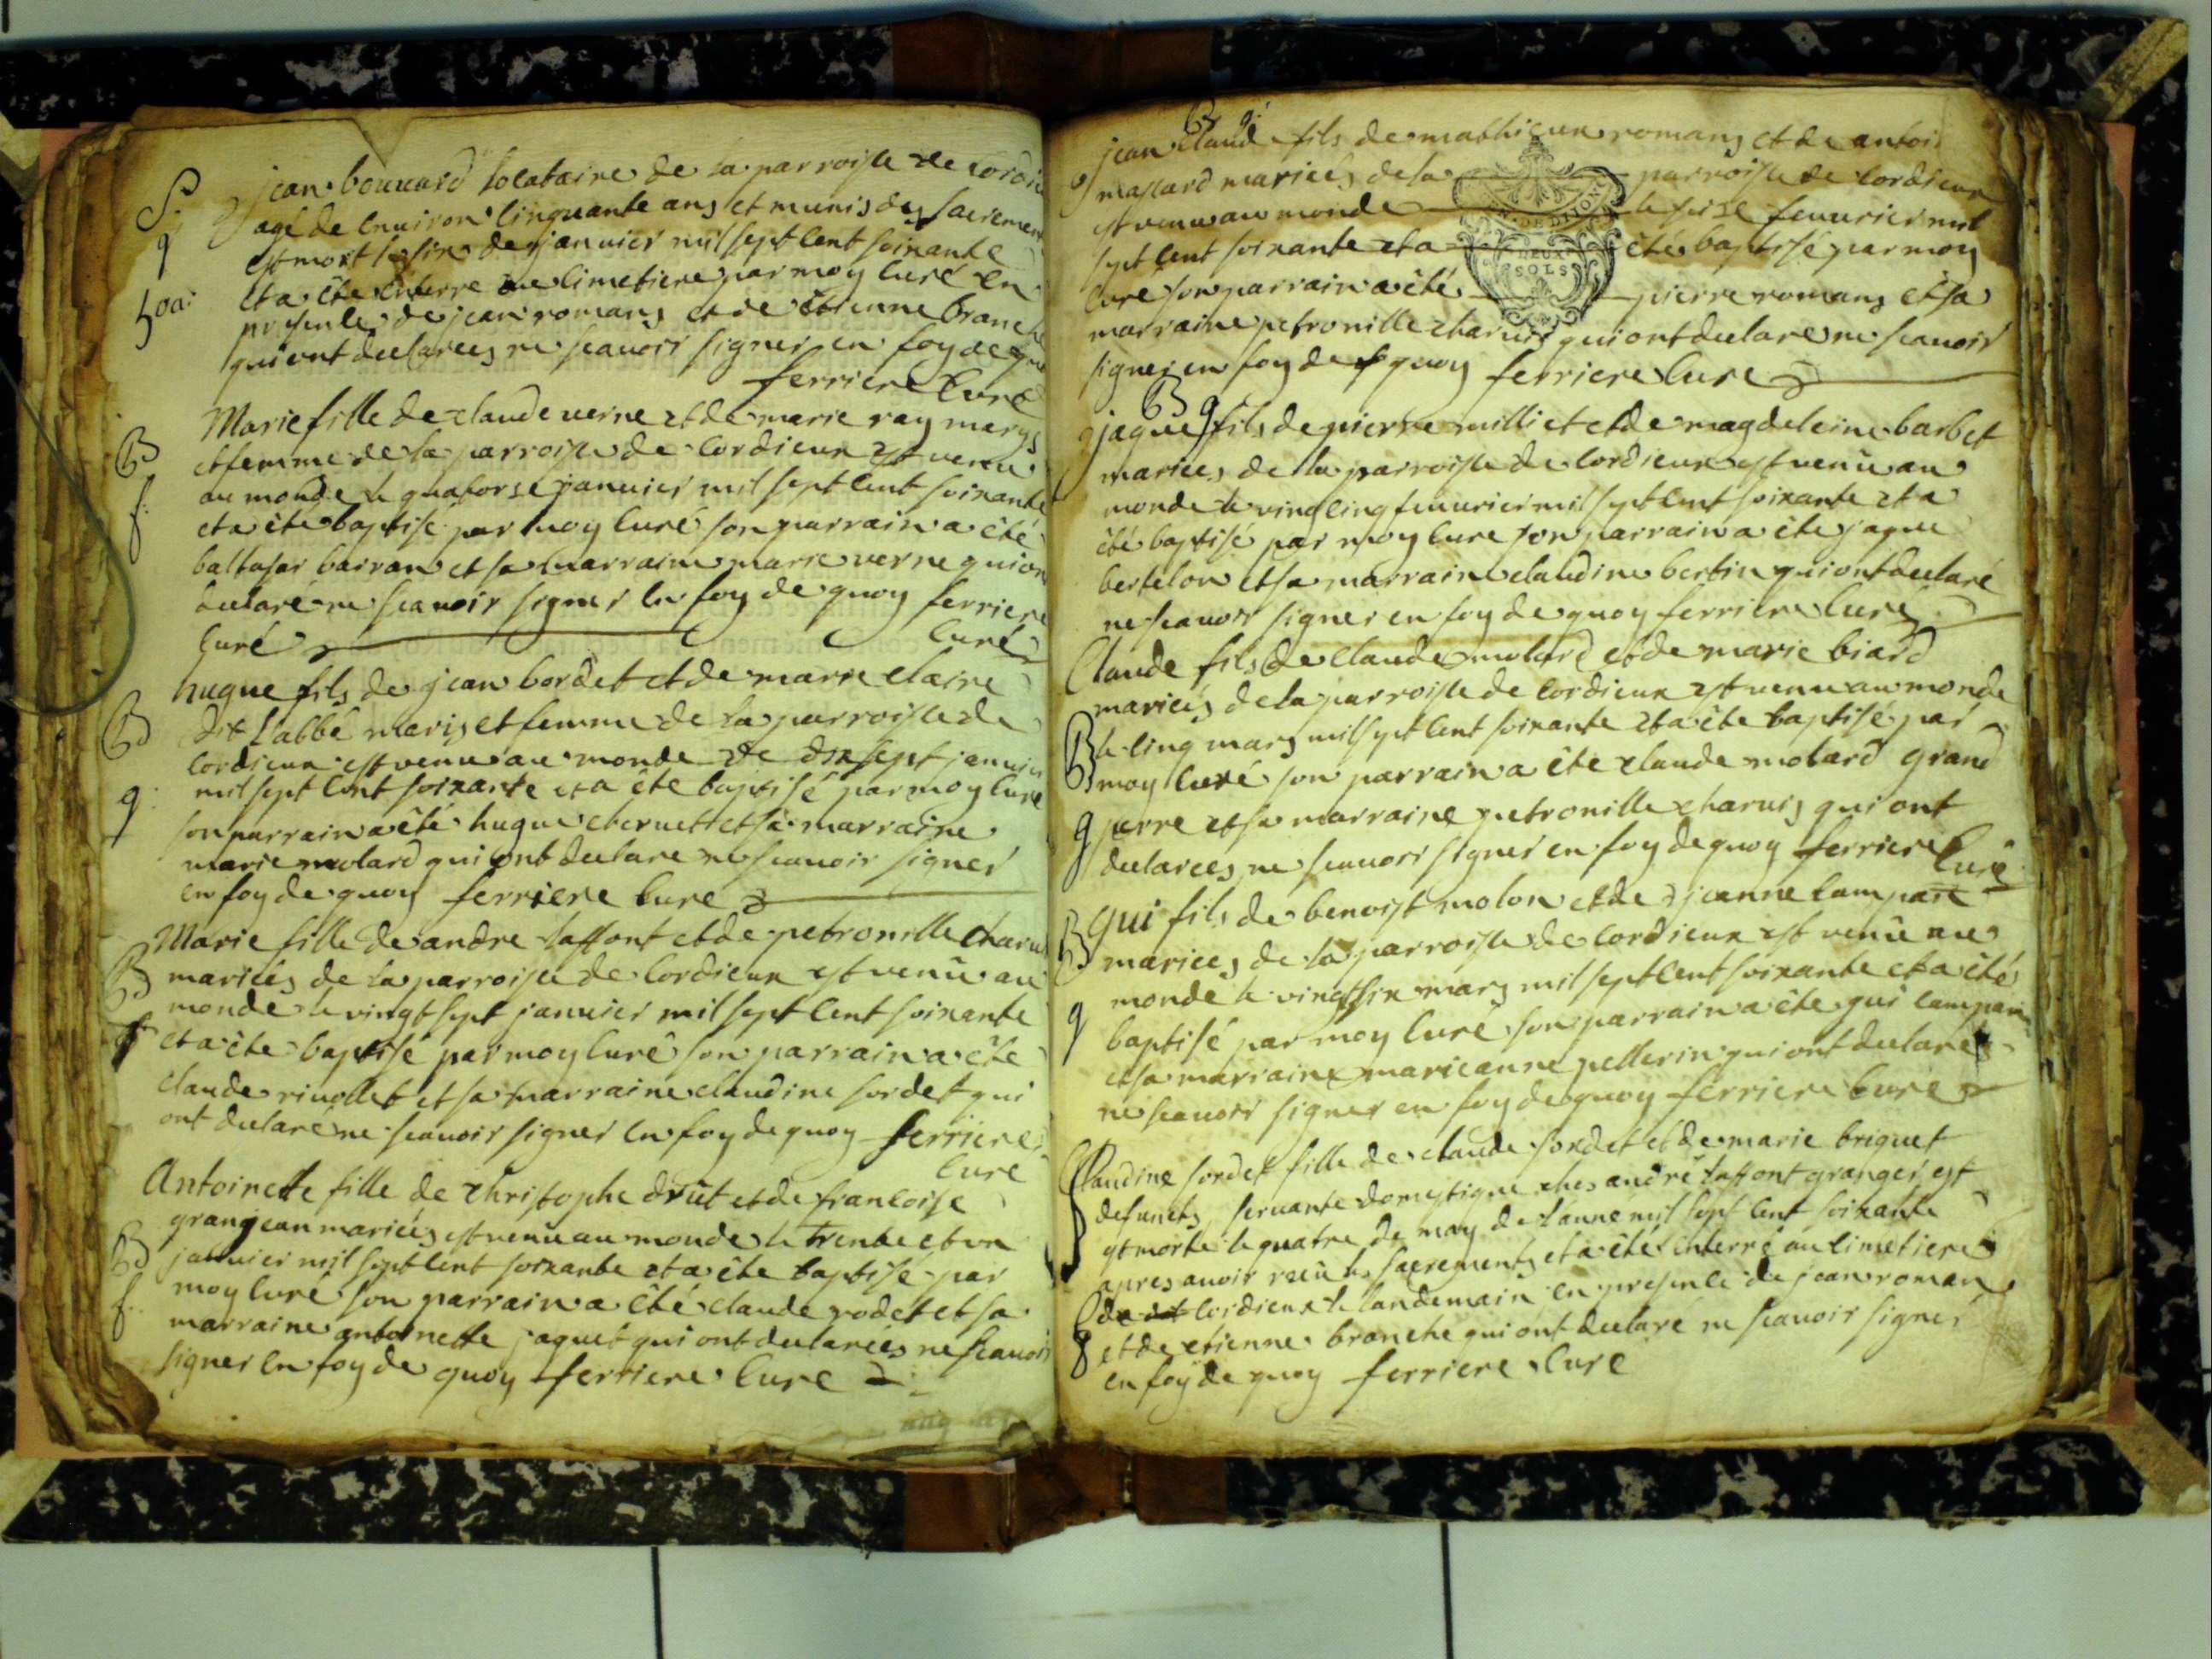 S.
g
50a:
jean bouuard locataire de la parroisse de cordi
agé de enuiron cinquante ans et munis des sacremen
est mort le six de januier mil sept cent soixante
et a été enterre au cimetiere par moy curé en
presence de jean romans et de etienne branche
qui ont declarees ne scauoir signer en foy de quoy
ferriere curé
B
f.
Marie fille de claude verne et de marie ray marys
et femme de la parroisse de cordieux est venu
au monde le quatorse januier mil sept cent soixante
et a été baptisé par moy curé son parrain a été
baltasar barran et sa marraine marie verne qui on
declaré ne scauoir signer en foy de quoy ferriere
curé curé
B
g.
hugue fils de jean bordet et de marie claire
dit l'abbé marys et femme de la parroisse de
cordieux est venu au monde le dixsept januier
mil sept cent soixante et a été baptisé par moy curé
son parrain a été hugue chernet et sa marraine
marie molard qui ont declare ne scauoir signer
en foy de quoy ferriere cure
B
f
Marie fille de andre laffont et de petronille charui
mariées de la parroisse de cordieux est venu au
monde le vingt sept januier mil sept cent soixante
et a été baptisé par moy curé son parrain a été
claude riuollet et sa marraine claudine sordet qui
ont declaré ne scauoir signer en foy de quoy ferriere
cure
B
f.
Antoinette fille de christophe drût et de francoise
granjean mariées est venu au monde le trente et un
januier mil sept cent soixante et a été baptisé par
moy curé son parrain a été claude rodet et sa
marraine antoinette jaquet qui ont declarées ne scauoir
signer en foy de quoy ferriere cure
B g.
jean claude fils de mathieu romans et de antoi
massard mariées de la parroisse de cordieux
est venu au monde le seise feuurier mil
sept cent soixante et a été baptisé par moy
curé son parrain a été pierre romans et sa
marraine petronille charuis qui ont declare ne scauoir
signer en foy de quoy ferriere cure
DE DIJON
DEUX
SOLS
B g
jaque fils de pierre milliet et de magdeleine barbet
mariees de la parroisse de cordieux est venû au
monde le vincinq feuurier mil sept cent soixante et a
été baptisé par moy cure son parrain a été jaque
bertelon et sa marraine claudine bertin qui ont declaré
ne scauoir signer en foy de quoy ferriere curé
Claude fils de claude molard et de marie biard
mariées de la parroisse de cordieux est venu au monde
B le cinq mars mil sept cent soixante et a été baptisé par
moy curé son parrain a été claude molard grand
g perre et sa marraine petronille charuis qui ont
declarees ne scauoir signer en foy de quoy ferriere
curé
B qui fils de benoist molon et de jeanne campan
mariees de la parroisse de cordieux est venû au
monde le vingtsix mars mil sept cent soixante et a été
g baptisé par moy curé son parrain a été gui campan
et sa marraine marieanne pellerin qui ont declare
ne scauoir signer en foy de quoy ferriere cure
Claudine sordet fille de claude sordet et de marie briquet
defunets seruante domestique ches andré laffont granger est
est morte le quatre de may de l'anné mil sept cent soixante
apres auoir recû les sacrements et a été enterré au cimetiere
de cordieux le landemain en presence de jean roman
et de etienne branche qui ont declare ne scauoir signer
en foy de quoy ferriere cure